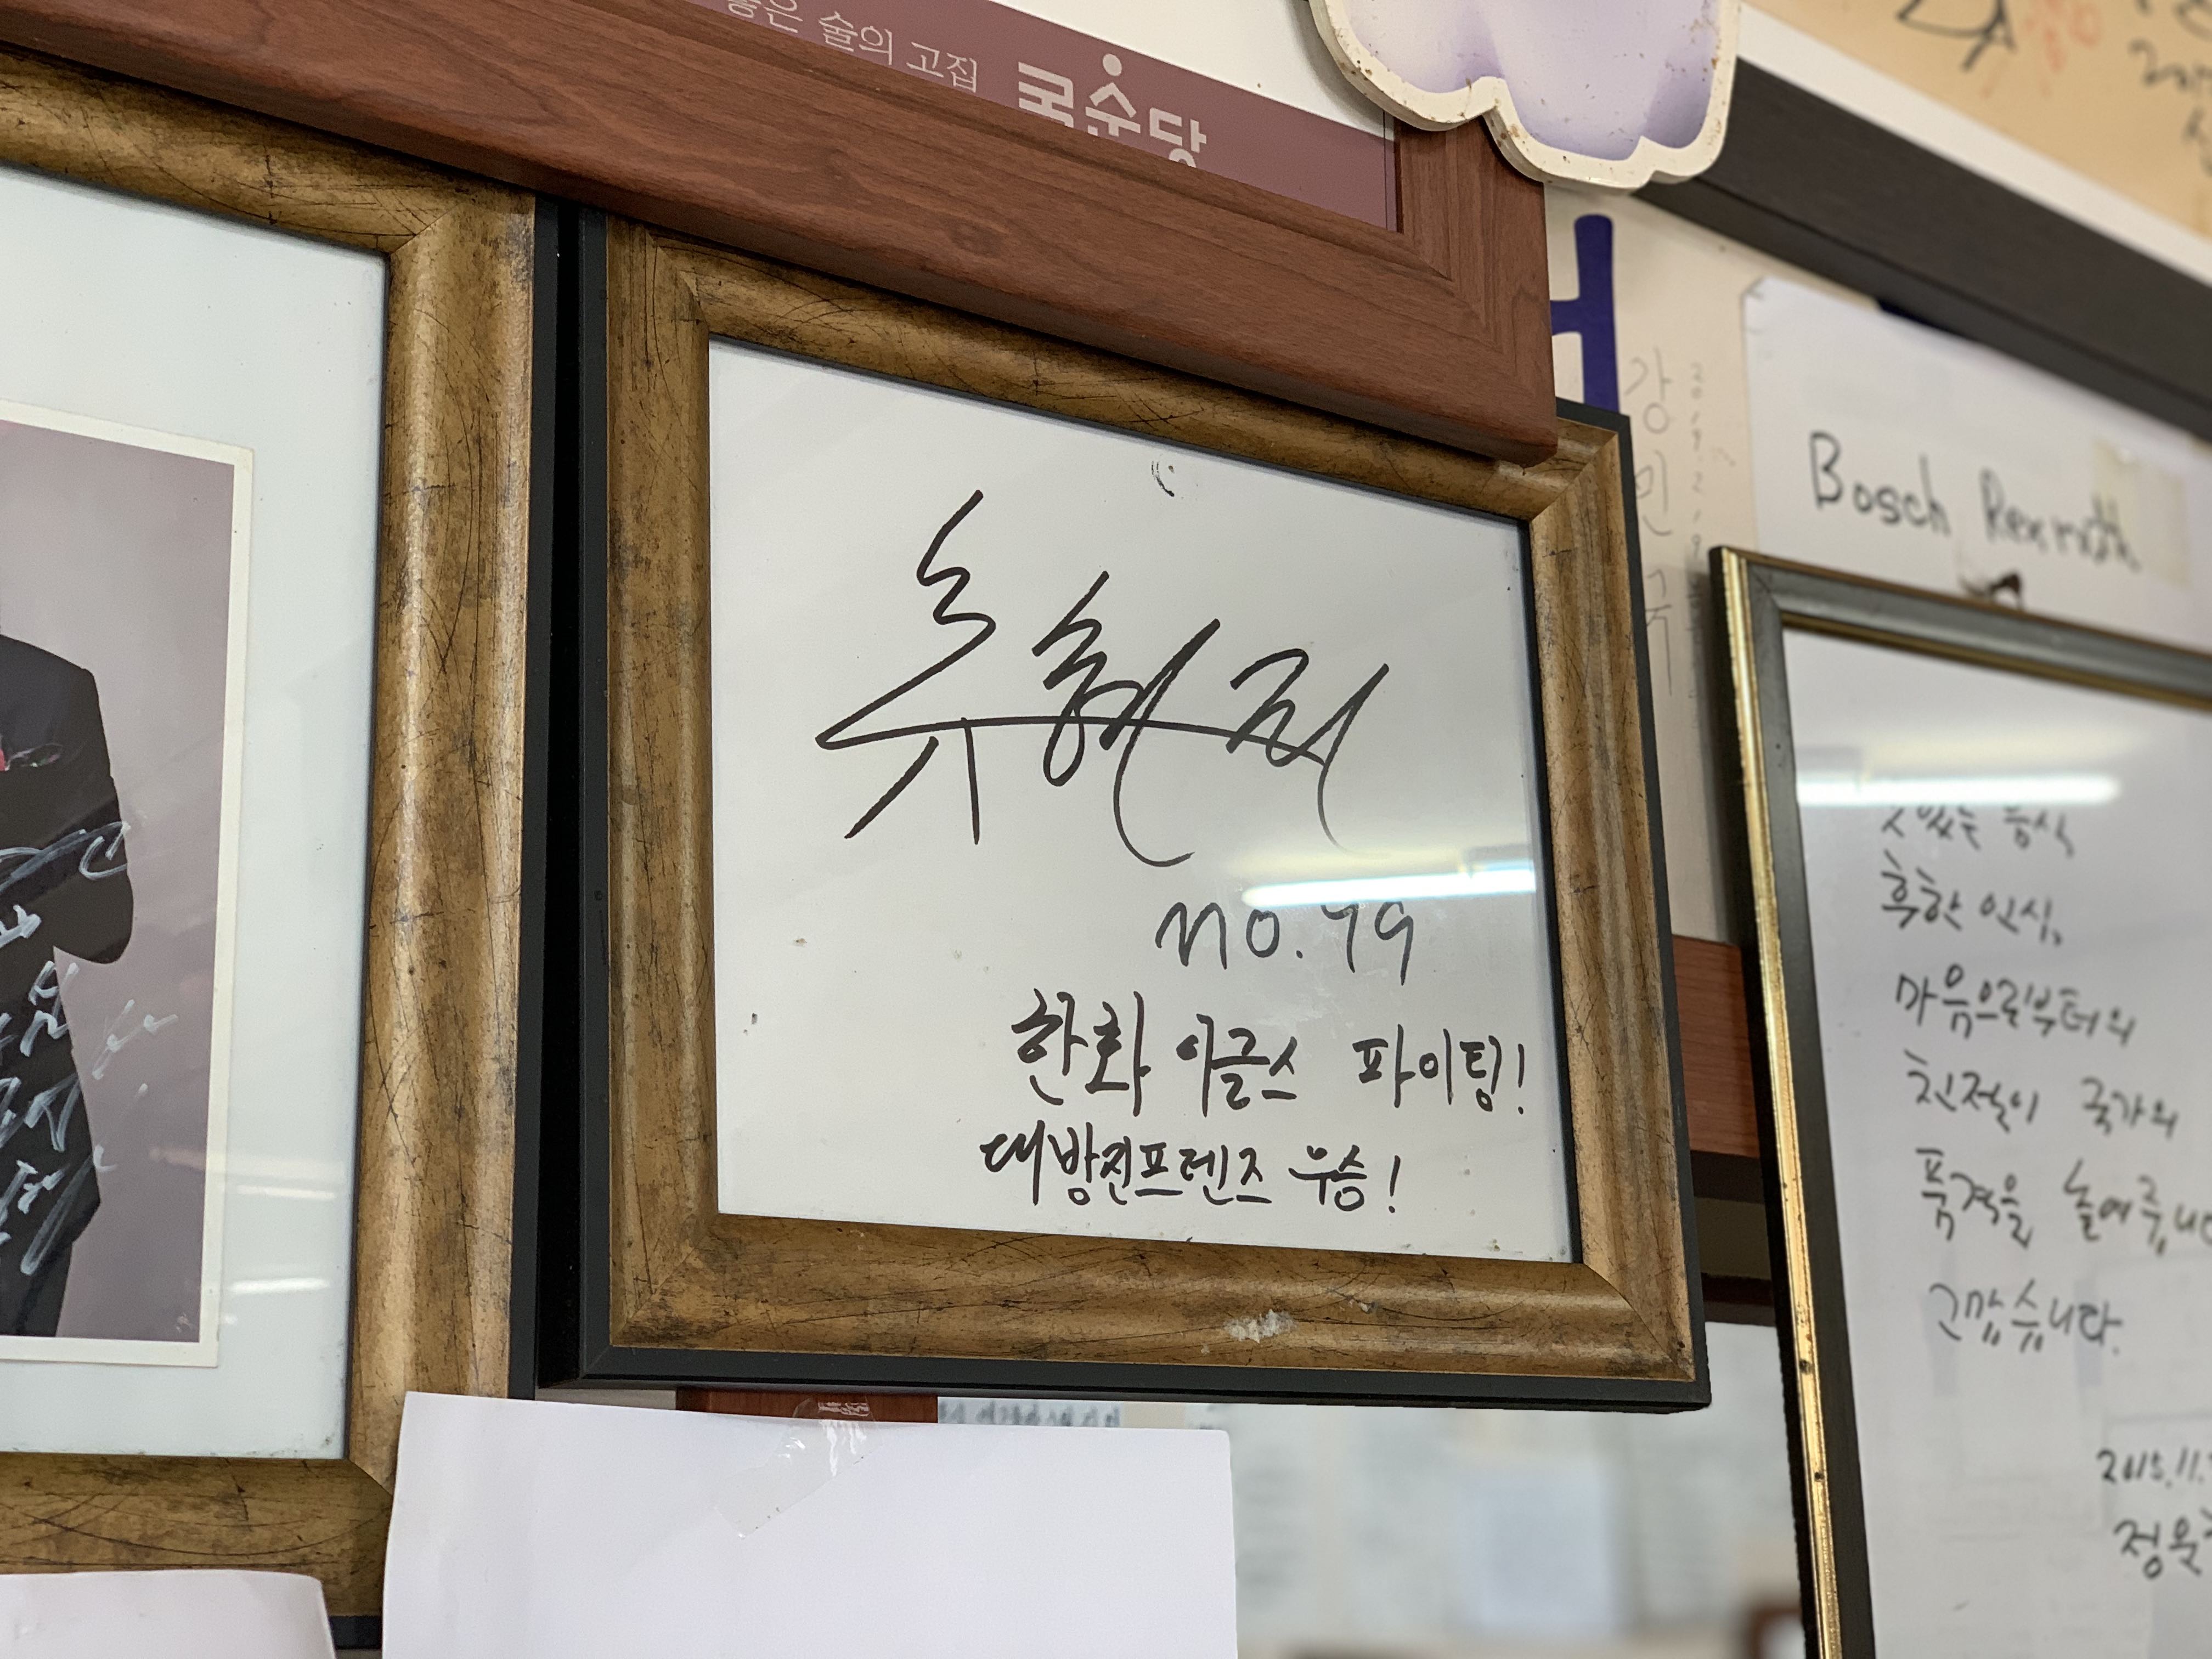 좋은 술의 고집 국순당
류현진
NO. 99
한화 이글스 파이팅!
대방진프렌즈 우승!
강민국
2019. 2. 19
Bosch Rexroth
맛있는 음식
훅한 인심,
마음으로부터의
친절이 국가의
품격을 높여줍니
고맙습니다.
2015.11.
정운